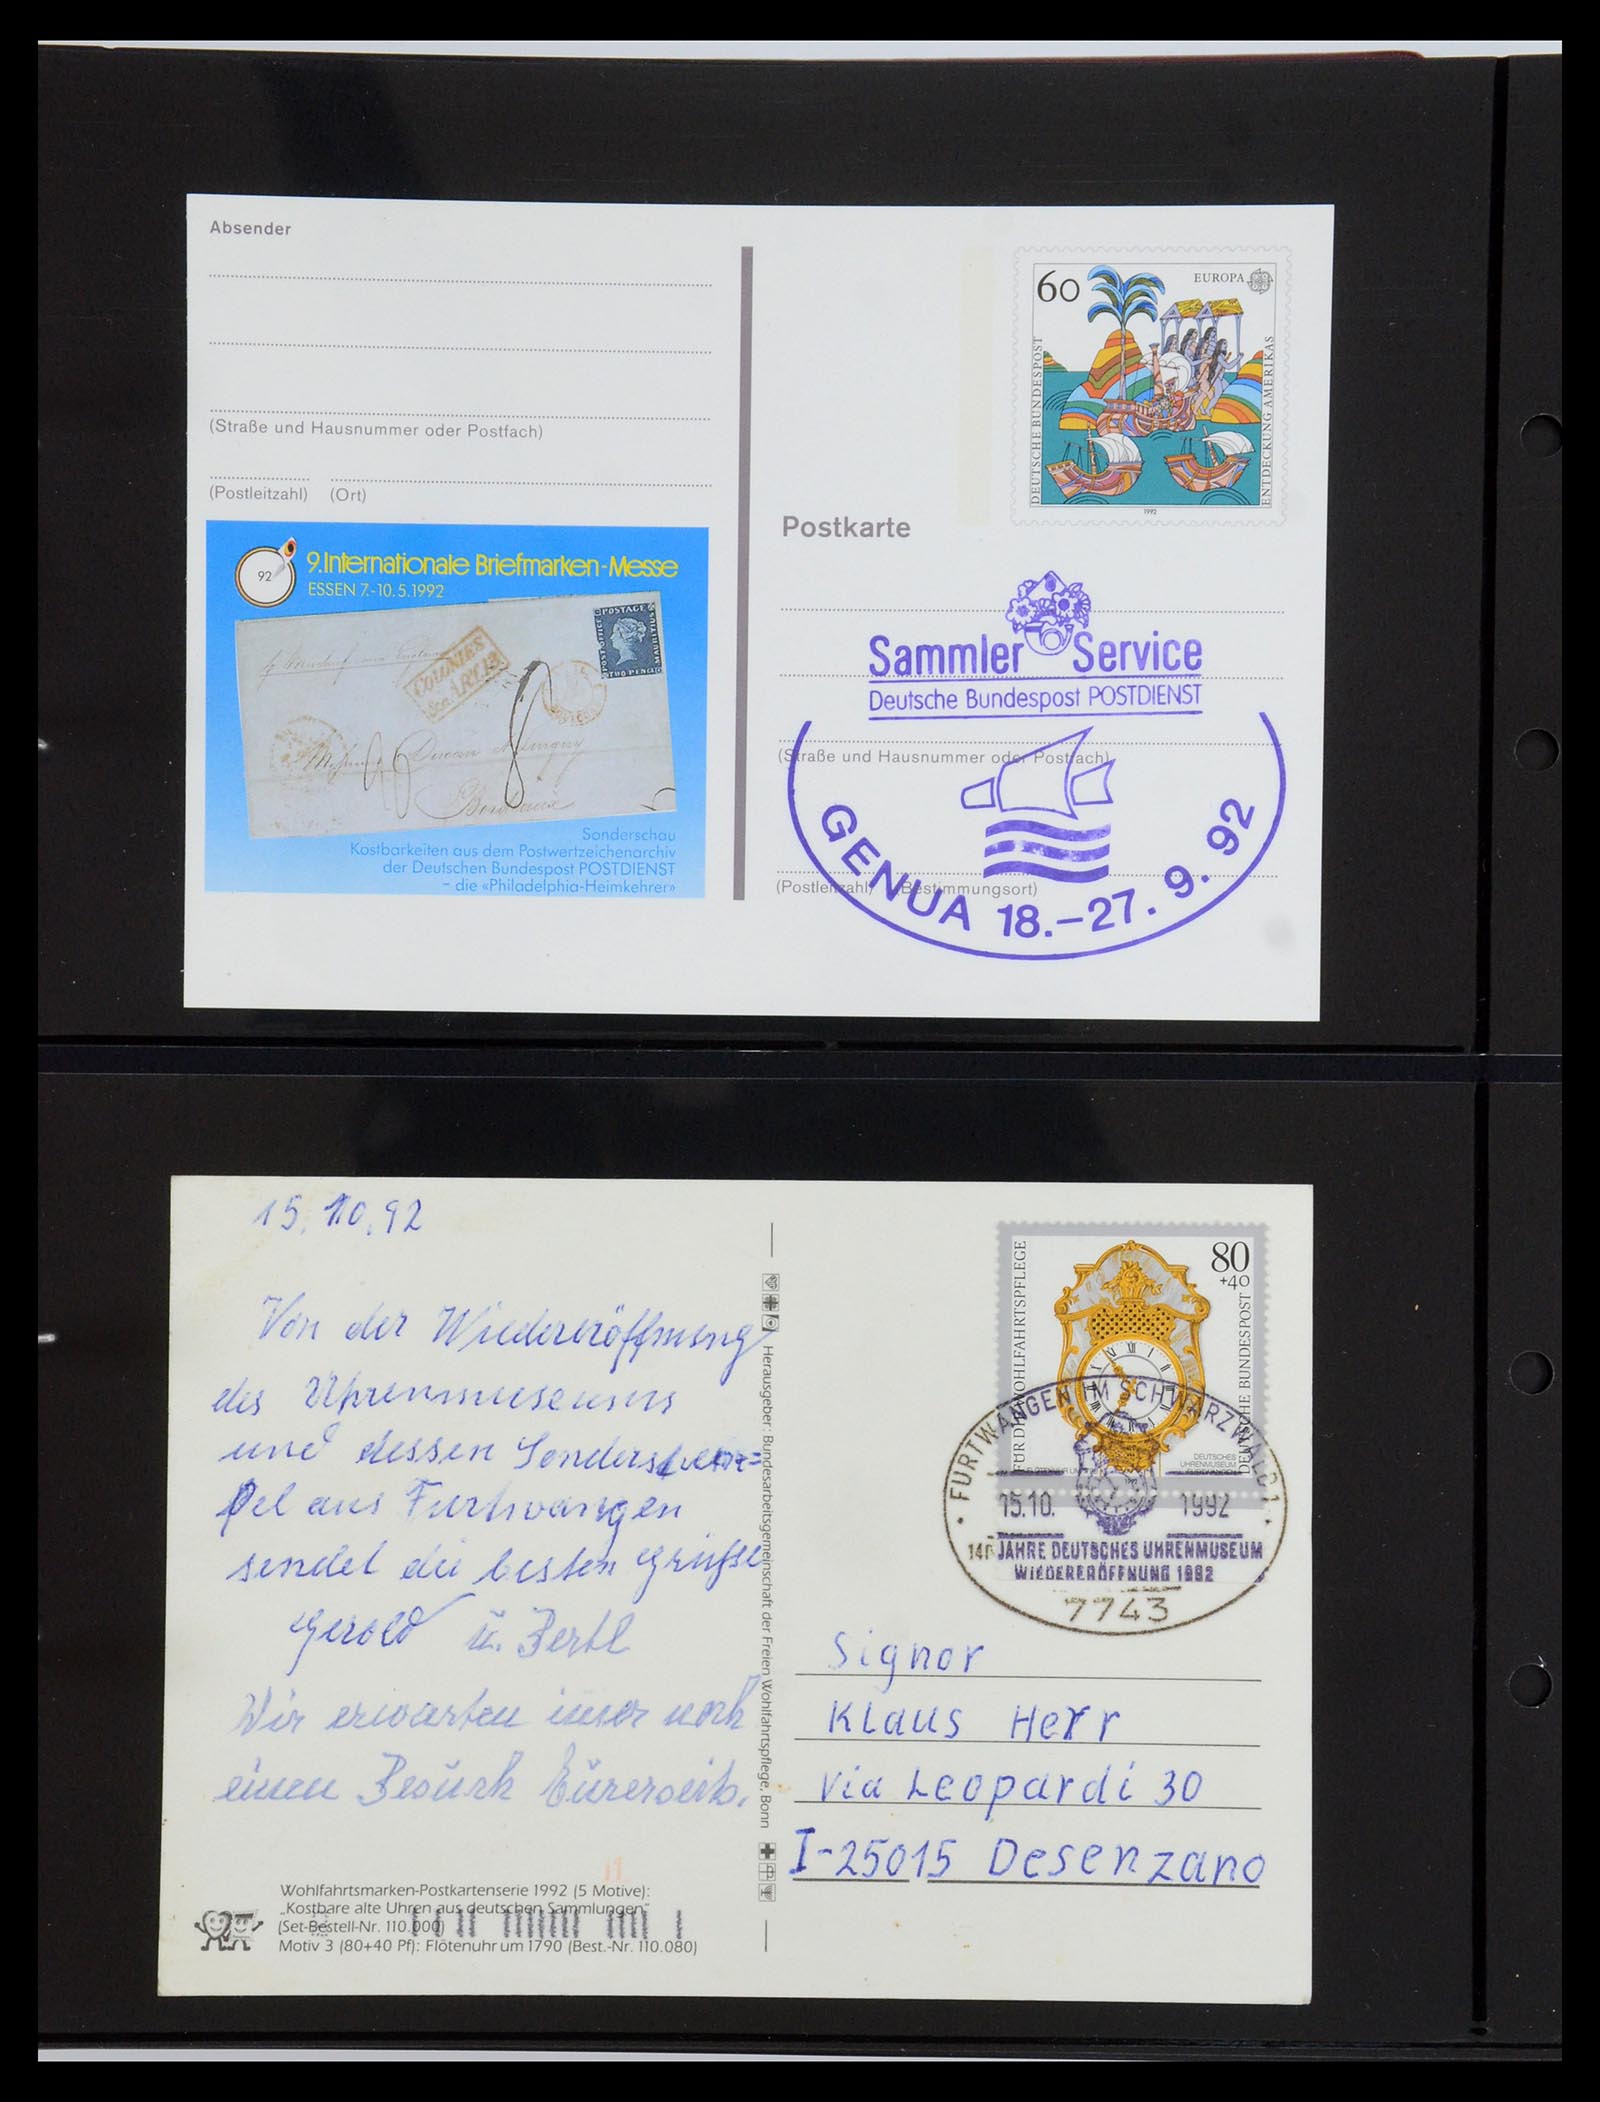 Absender
(Straße und Hausnummer oder Postfach)
(Postleitzahl) (Ort)
92
9. Internationale Briefmarken-Messe
ESSEN 7.-10.5.1992
POSTAGE
POST OFFICE
MAURITIUS
TWO PENCE
COLONIES
&c. ART.13.
Bordeaux
Sonderschau
Kostbarkeiten aus dem Postwertzeichenarchiv
der Deutschen Bundespost POSTDIENST
– die «Philadelphia-Heimkehrer»
60
EUROPA
DEUTSCHE BUNDESPOST
ENTDECKUNG AMERIKAS
1992
Postkarte
Sammler Service
Deutsche Bundespost POSTDIENST
(Straße und Hausnummer oder Postfach)
(Postleitzahl) (Bestimmungsort)
GENUA 18.–27. 9. 92
15.10.92
Von der Wiedereröffnung
des Uhrenmuseums
und dessen Sonderstem=
pel aus Furtwangen
sendet die besten Grüße
Gerold u. Bertl
Wir erwarten imer noch
einen Besuch Eurerseits.
Wohlfahrtsmarken-Postkartenserie 1992 (5 Motive):
„Kostbare alte Uhren aus deutschen Sammlungen"
(Set-Bestell-Nr. 110.000)
Motiv 3 (80+40 Pf): Flötenuhr um 1790 (Best.-Nr. 110.080)
Herausgeber: Bundesarbeitsgemeinschaft der Freien Wohlfahrtspflege, Bonn
80
+40
FÜR DIE WOHLFAHRTSPFLEGE
DEUTSCHE BUNDESPOST
DEUTSCHES
UHRENMUSEUM
FURTWANGEN
FURTWANGEN IM SCHWARZWALD 1
15.10. 1992
140 JAHRE DEUTSCHES UHRENMUSEUM
WIEDERERÖFFNUNG 1992
7743
Signor
Klaus Herr
Via Leopardi 30
I-25015 Desenzano